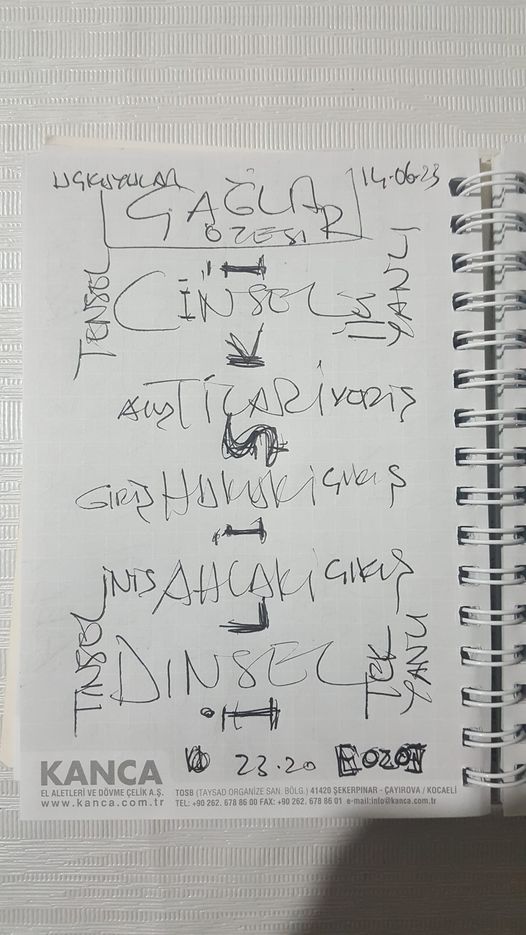 ÜÇKUYULAR 14-06-23
ÇAĞLAR
ÖZESİ
TENSEL
İ
CİNSEL
İŞ
YANLI
K
ALIŞ TİCARİ VERİŞ
Ş
GİRİŞ HUKUKİ ÇIKIŞ
İ
İNİŞ AHLAKİ ÇIKIŞ
L
TİNSEL
DİNSEL
TEK
YANLI
İ
23.20
KANCA
EL ALETLERİ VE DÖVME ÇELİK A.Ş.
www.kanca.com.tr
TOSB (TAYSAD ORGANİZE SAN. BÖLG.) 41420 ŞEKERPINAR - ÇAYIROVA / KOCAELİ
TEL: +90 262. 678 86 00 FAX: +90 262. 678 86 01 e-mail:info@kanca.com.tr